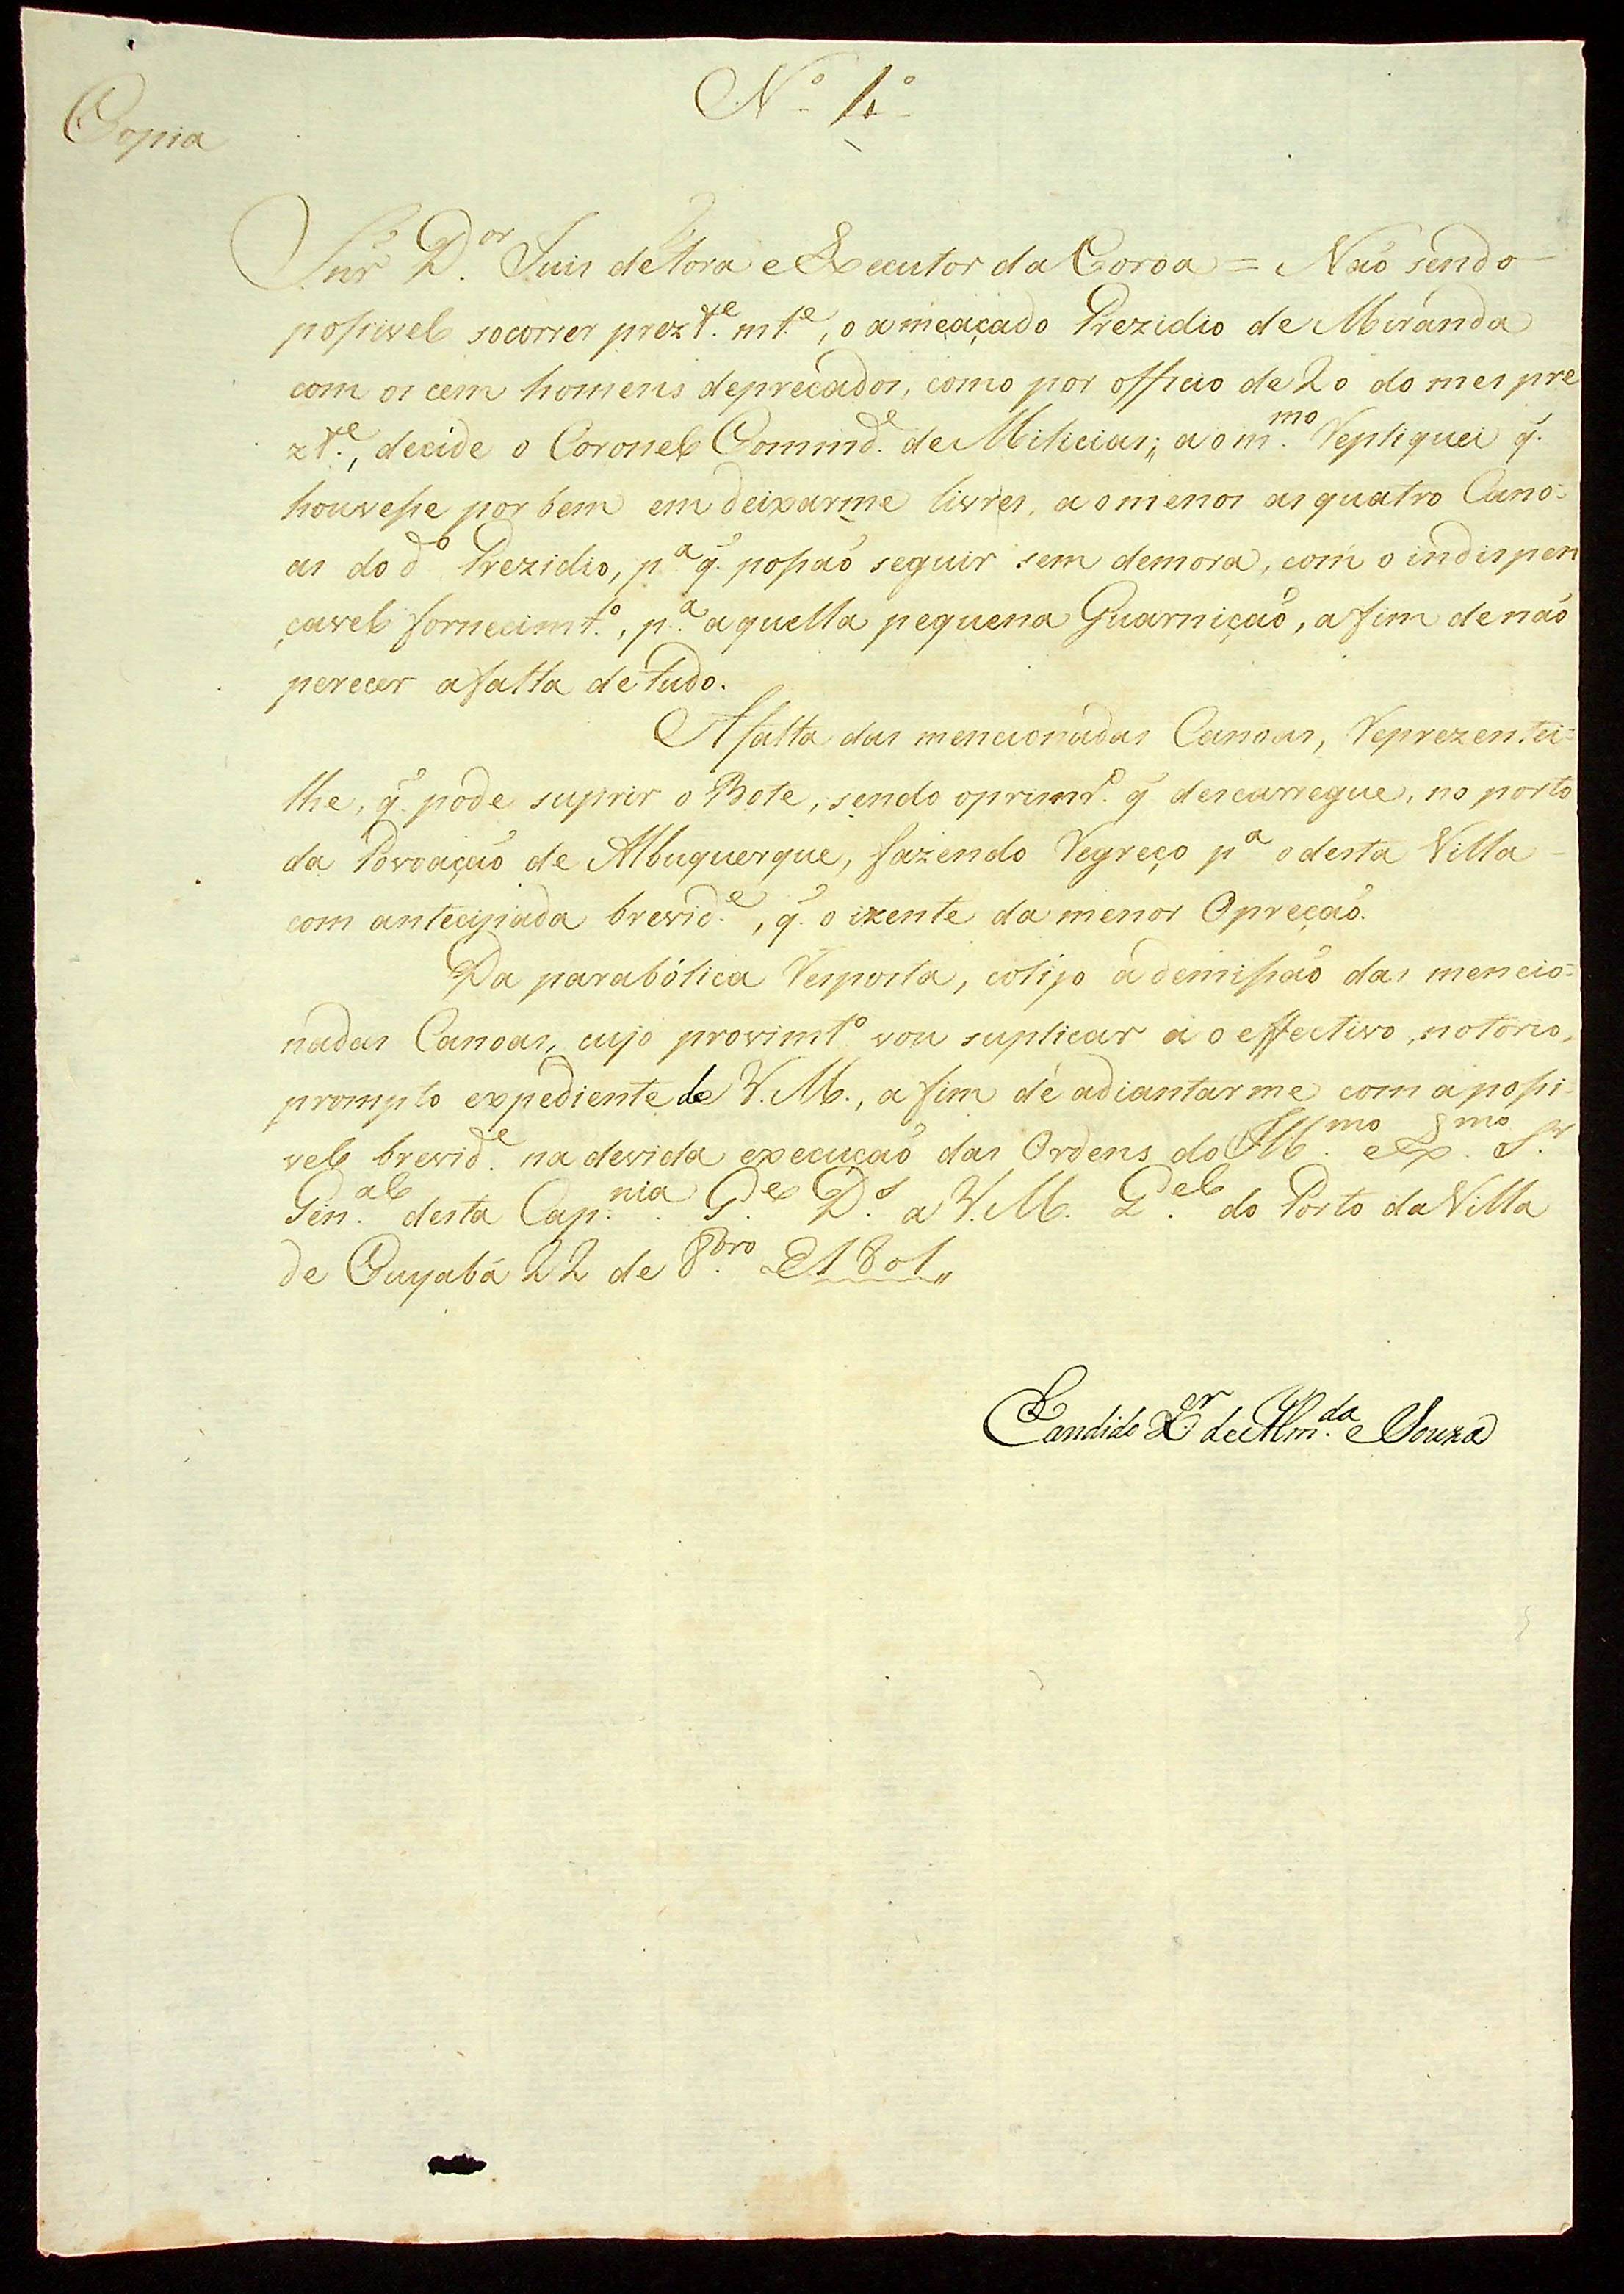 Nº 1º
Copia
Snr̃ D.or Juis de fora e Executor da Coroa = Naõ sendo
possivel socorrer prezt.e mt.e, o ameaçado Prezidio de Miranda
com os cem homens deprecados, como por officio de 20 do mes pre
zt.e, decide o Coronel Commd.e de Milicias; ao m.mo Repliquei q̃.
houvesse por bem em deixarme livres, ao menos as quatro Cano=
as do dº Prezidio, p.a q̃. possaõ seguir sem demora, com o indispen
çavel fornecimt.o, p.a aquella pequena Guarniçaõ, a fim de naõ
perecer a falta de tudo.
A falta das mencionadas Canoas, Reprezentei=
lhe, q̃. pode suprir o Bote, sendo o primr.o q̃ descarregue, no porto
da Povoaçaõ de Albuquerque, fazendo Regreço p.a o desta Villa
com antecipada brevid.e, q̃. o izente da menor Opreçaõ.
Da parabólica Resposta, colijo a demissaõ das mencio=
nadas Canoas, cujo provimt.o vou suplicar ao effectivo, notorio,
prompto expediente de V.M., a fim de adiantarme com a possi=
vel brevid.e na devida execuçaõ das Ordens do Ill.mo e Ex.mo S.r
Gen.al desta Cap.nia G.e D.s a V.M. Q.el do Porto da Villa
de Cuyabá 22 de 8.bro de 1801,,
Candido X.er de Alm.da e Souza